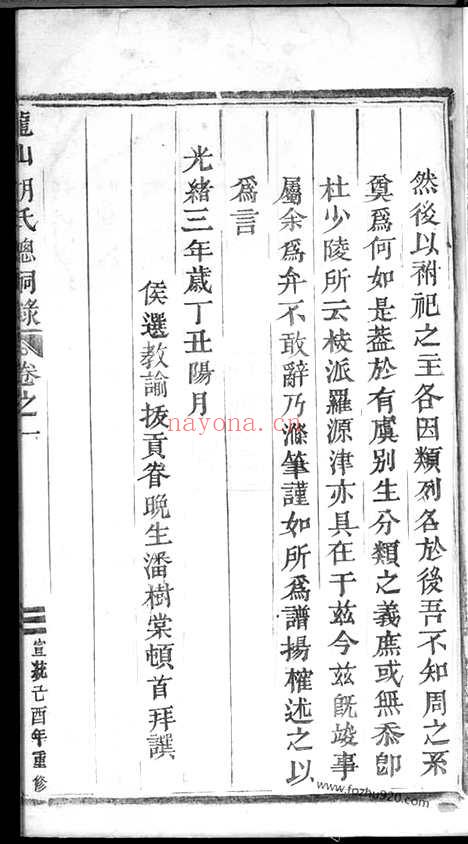 然後以祔祀之主各因類列名於後吾不知周之系
奠爲何如是蓋於有虞別生分類之義庶或無忝卽
杜少陵所云枝派羅源津亦具在于兹今兹旣竣事
屬余爲弁不敢辭乃滌筆謹如所爲譜揚榷述之以
爲言
光緒三年歲丁丑陽月
侯選教諭拔貢眷晩生潘樹棠頓首拜譔
龍山胡氏總祠錄
卷之一
宣統己酉年重修
nayona.cn
www.fozhu920.com